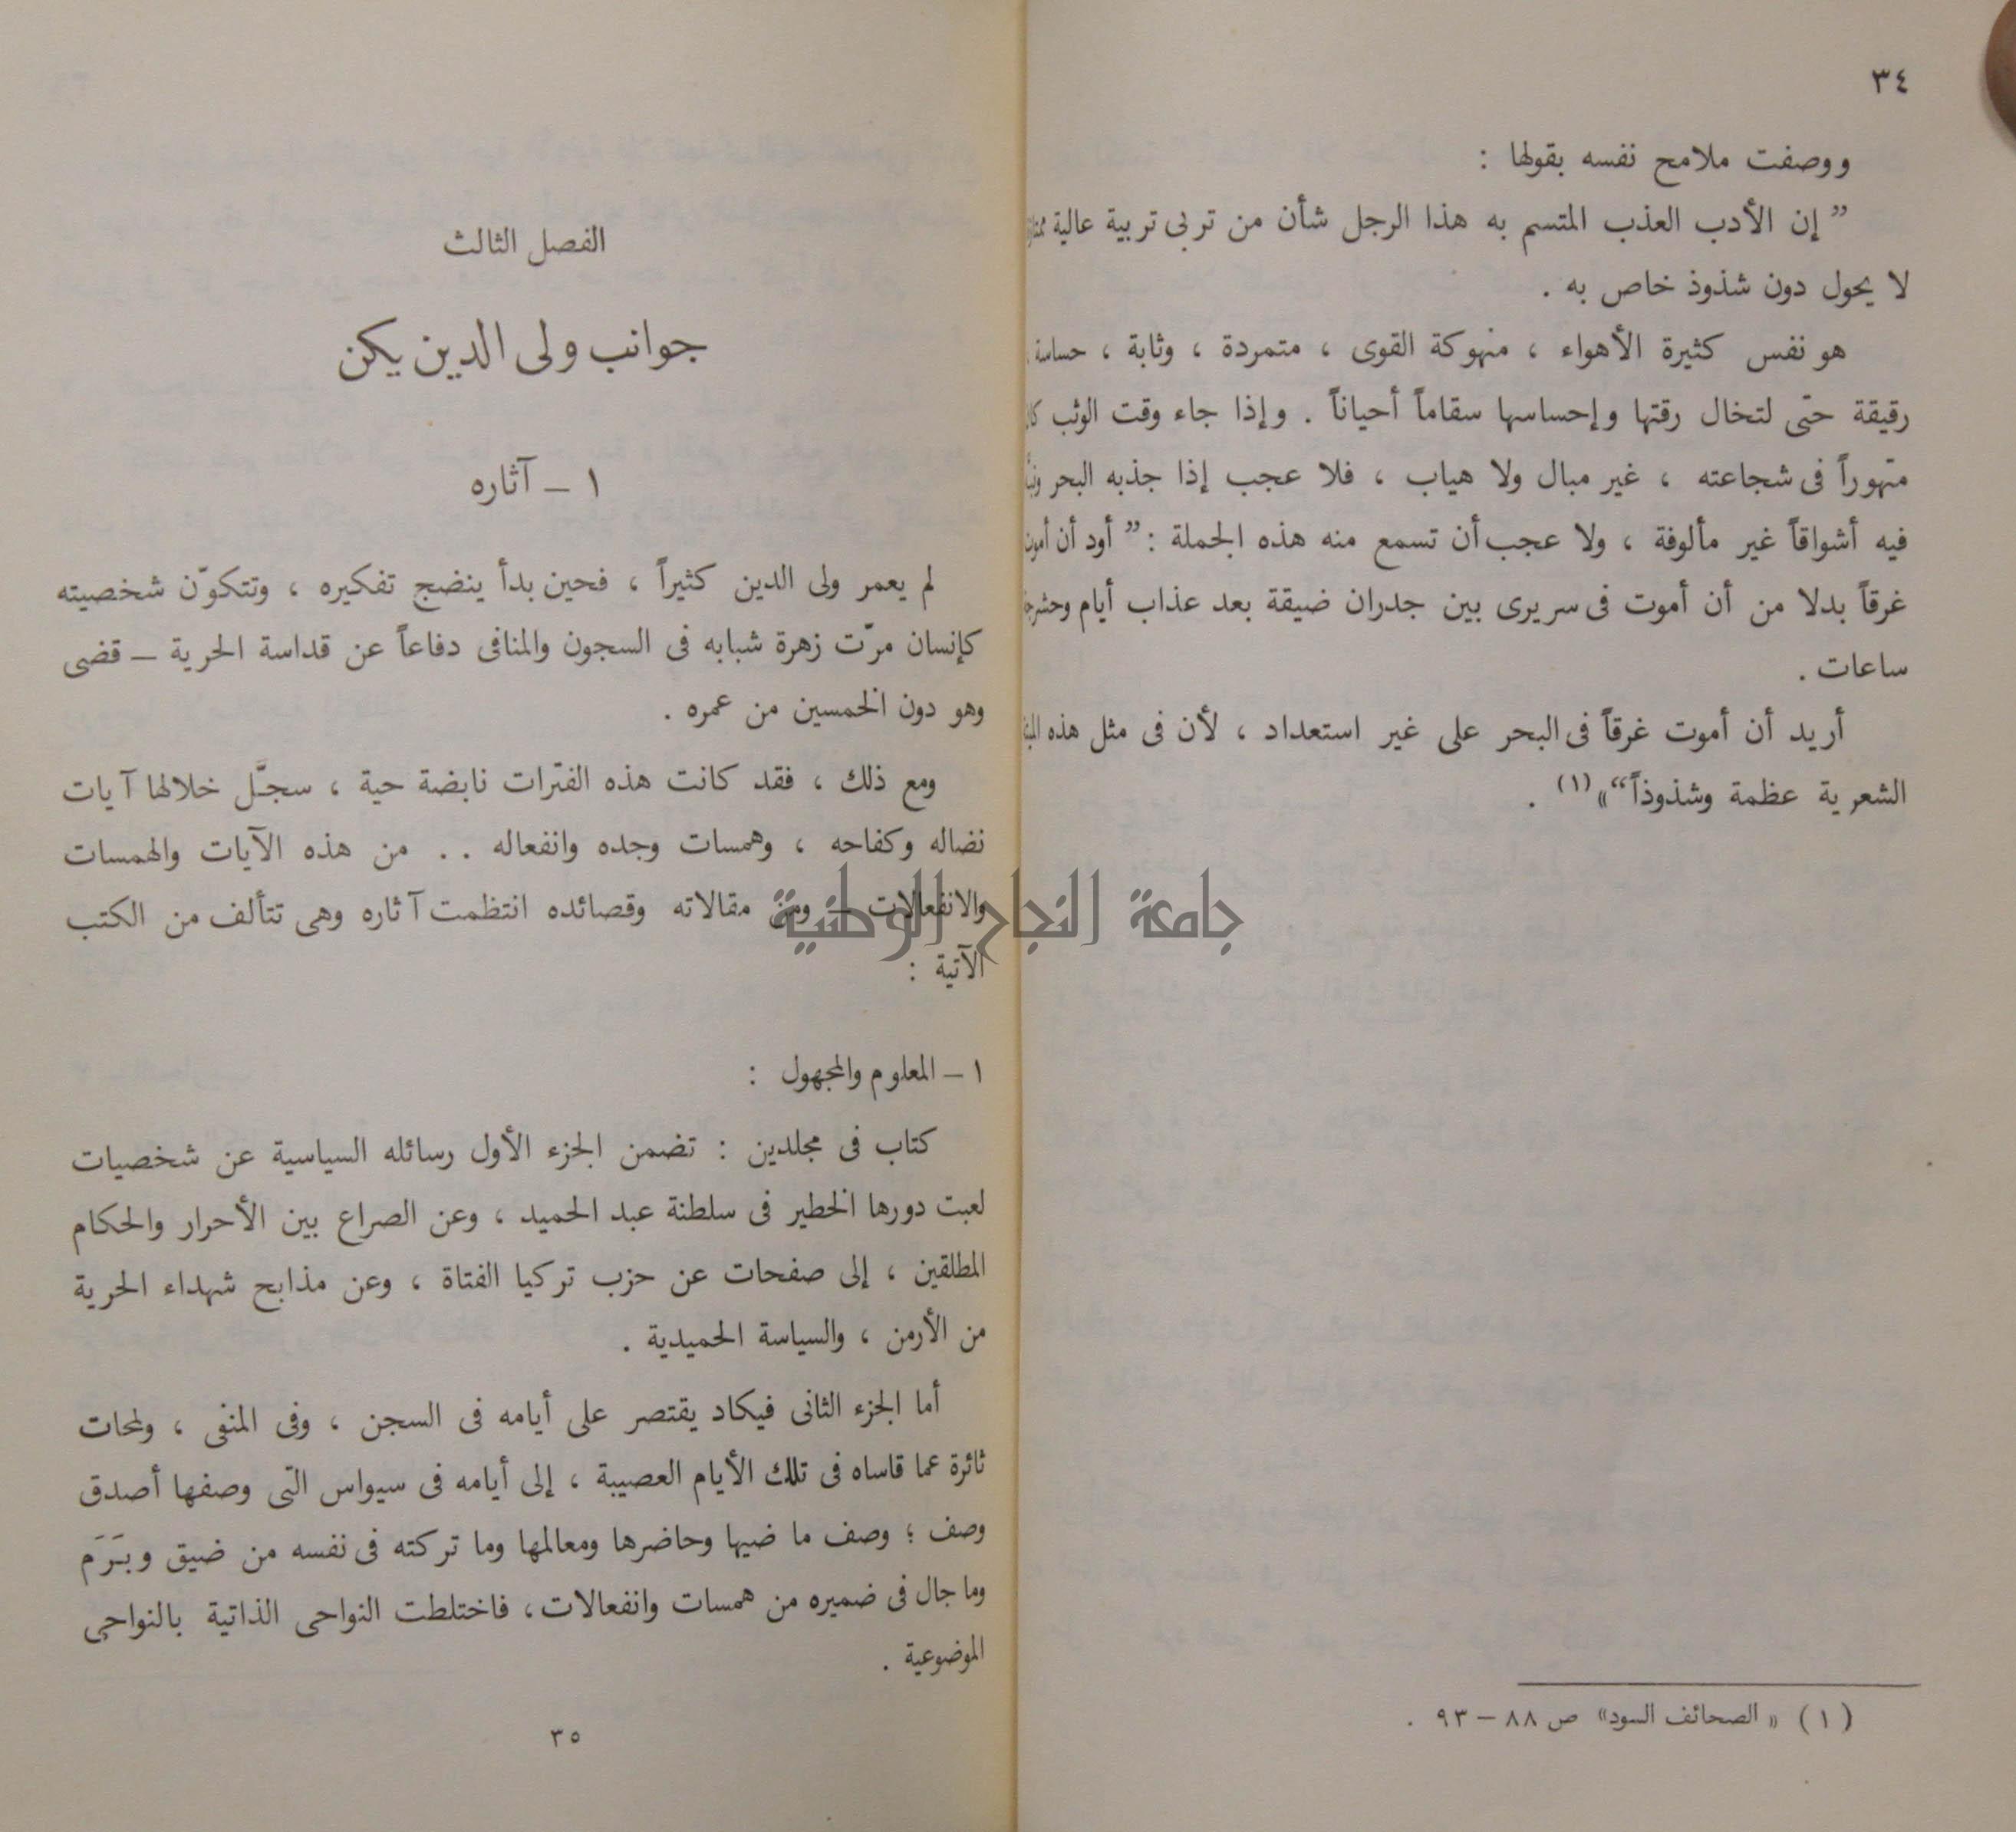 ٣٤
ووصفت ملامح نفسه بقولها :
” إن الأدب العذب المتسم به هذا الرجل شأن من تربى تربية عالية
لا يحول دون شذوذ خاص به .
هو نفس كثيرة الأهواء ، منهوكة القوى ، متمردة ، وثابة ، حساسة
رقيقة حتى لتخال رقتها وإحساسها سقاماً أحياناً . وإذا جاء وقت الوثب
متهوراً فى شجاعته ، غير مبال ولا هياب ، فلا عجب إذا جذبه البحر
فيه أشواقاً غير مألوفة ، ولا عجب أن تسمع منه هذه الجملة : ” أود أن أموت
غرقاً بدلا من أن أموت فى سريرى بين جدران ضيقة بعد عذاب أيام
ساعات .
أريد أن أموت غرقاً فى البحر على غير استعداد ، لأن فى مثل هذه
الشعرية عظمة وشذوذاً“» (١) .
(١) « الصحائف السود» ص ٨٨ – ٩٣ .
الفصل الثالث
جوانب ولى الدين يكن
١ – آثاره
لم يعمر ولى الدين كثيراً ، فحين بدأ ينضج تفكيره ، وتتكوّن شخصيته
كإنسان مرّت زهرة شبابه فى السجون والمنافى دفاعاً عن قداسة الحرية – قضى
وهو دون الخمسين من عمره .
ومع ذلك ، فقد كانت هذه الفترات نابضة حية ، سجَّل خلالها آيات
نضاله وكفاحه ، وهمسات وجده وانفعاله . . من هذه الآيات والهمسات
والانفعالات – ومن مقالاته وقصائده انتظمت آثاره وهى تتألف من الكتب
الآتية :
١ – المعلوم والمجهول :
كتاب فى مجلدين : تضمن الجزء الأول رسائله السياسية عن شخصيات
لعبت دورها الخطير فى سلطنة عبد الحميد ، وعن الصراع بين الأحرار والحكام
المطلقين ، إلى صفحات عن حزب تركيا الفتاة ، وعن مذابح شهداء الحرية
من الأرمن ، والسياسة الحميدية .
أما الجزء الثانى فيكاد يقتصر على أيامه فى السجن ، وفى المنفى ، ولمحات
ثائرة عما قاساه فى تلك الأيام العصيبة ، إلى أيامه فى سيواس التى وصفها أصدق
وصف ؛ وصف ما ضيها وحاضرها ومعالمها وما تركته فى نفسه من ضيق وبَرَم
وما جال فى ضميره من همسات وانفعالات ، فاختلطت النواحى الذاتية بالنواحى
الموضوعية .
٣٥
جامعة النجاح الوطنية